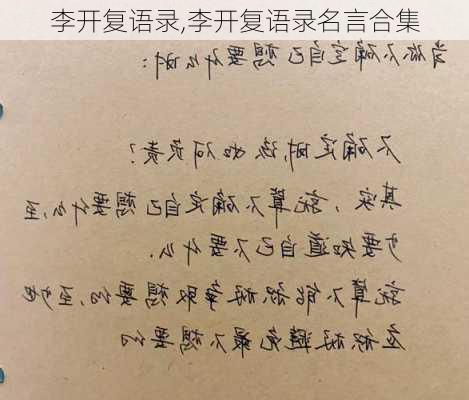 李开复语录,李开复语录名言合集
当你不确定自己想要什么时:
不确定时,该如何负责?
其实,就算不确定自己想要什么,至
少要知道自己不要什么.
就算不能争取想要,至
避免最不想要